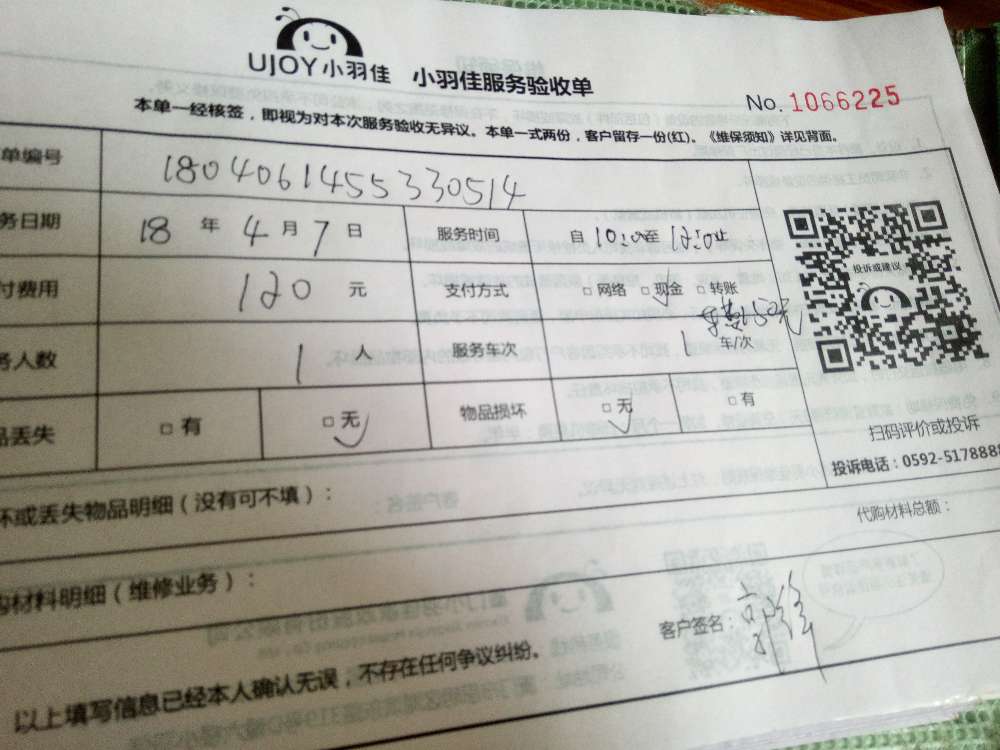 UJOY小羽佳 小羽佳服务验收单
No. 1066225
本单一经核签，即视为对本次服务验收无异议。本单一式两份，客户留存一份(红)。《维保须知》详见背面。
单编号 1804061455330514
务日期 18 年 4 月 7 日 服务时间 自 10:00 至 12:00 止
付费用 120 元 支付方式 □ 网络 □ 现金 □ 转账
务人数 1 人 服务车次 1 车/次
品丢失 □ 有 □ 无 物品损坏 □ 无 □ 有
投诉或建议
扫码评价或投诉
投诉电话：0592-5178888
坏或丢失物品明细（没有可不填）：
代购材料总额：
购材料明细（维修业务）：
客户签名：
以上填写信息已经本人确认无误，不存在任何争议纠纷。